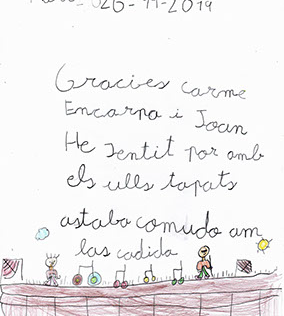 26-11-2019
Gracies carme
Encarna i Joan
He sentit por amb
els ulls tapats
astaba comudo am
las cadida